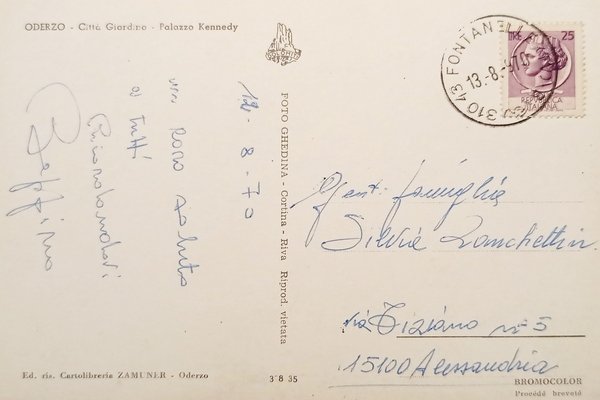 ODERZO - Città Giardino - Palazzo Kennedy
12-8-70
un caro saluto
a tutti
Ricordandovi
Beppino
Ed. ris. Cartolibreria ZAMUNER - Oderzo
FOTO GHEDINA - Cortina - Riva Riprod. vietata
3 8 35
31043 FONTANELLE
13.-8.-70
LIRE 25
REPUBBLICA
ITALIANA
Gent. famiglia
Silvia Zanchettin
via Tiziano n° 5
15100 Alessandria
BROMOCOLOR
Procédé breveté